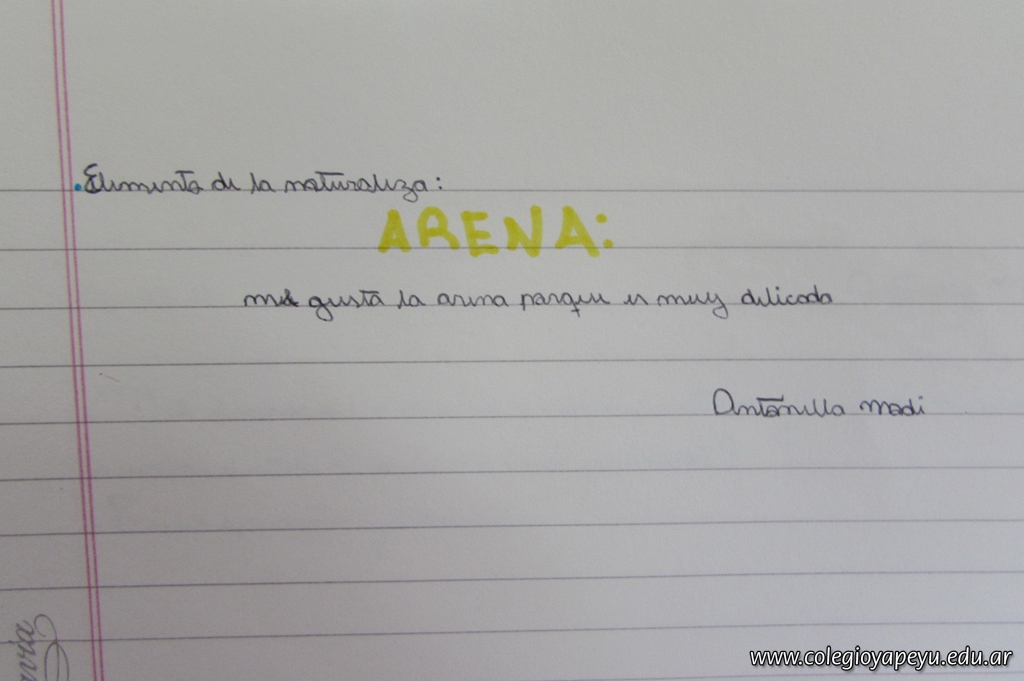 Elemento de la naturaleza:
ARENA:
me gusta la arena porque es muy delicada
Antonella Madi
www.colegioyapeyu.edu.ar